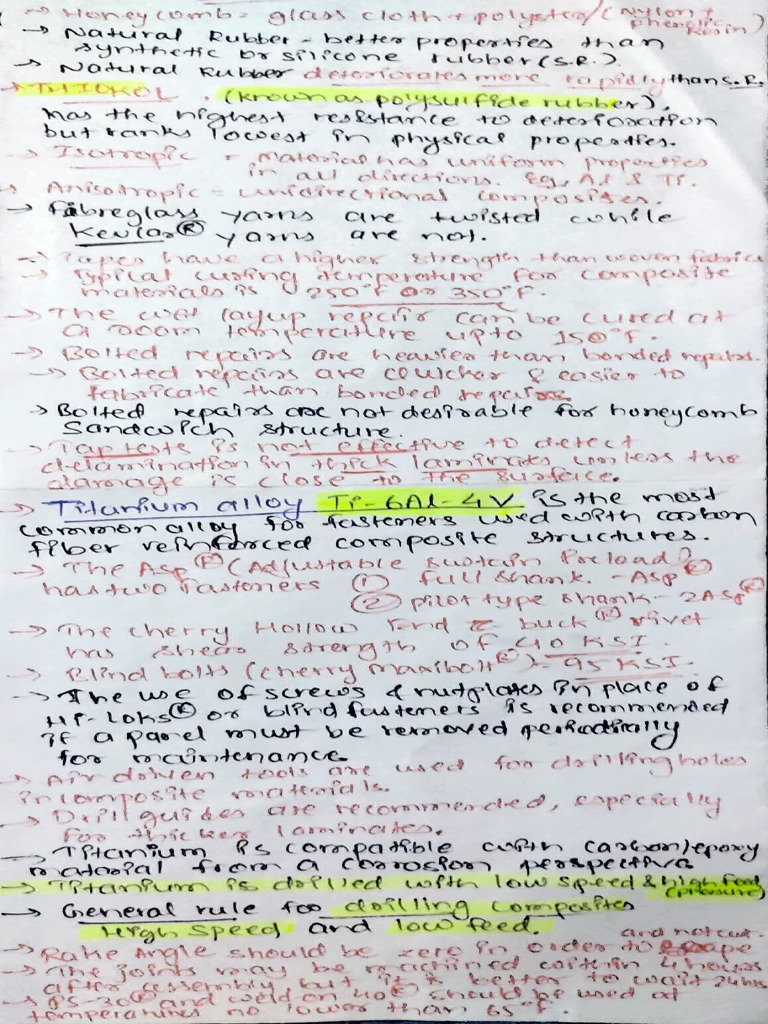 → Honeycomb = glass cloth + polyster/(Nylon + phenolic Resin)
→ Natural Rubber = better properties than
synthetic or silicone rubber (S.R.).
→ Natural Rubber deteriorates more rapidly than S.R.
→ THIOKOL. (known as polysulfide rubber).
has the highest resistance to deterioration
but ranks lowest in physical properties.
→ Isotropic = Material has uniform properties
in all directions. Eg, Al & Ti.
→ Anisotropic = unidirectional composites.
→ fibreglass yarns are twisted while
Kevlar® yarns are not.
→ Tapes have a higher strength than woven fabrics
→ Typical curing temperature for composite
materials is 250°F or 350°F.
→ The wet layup repair can be cured at
a room temperature upto 150°F.
→ Bolted repairs are heavier than bonded repairs.
→ Bolted repairs are quicker & easier to
fabricate than bonded repairs.
→ Bolted repairs are not desirable for honeycomb
Sandwich structure.
→ Tap tests is not effective to detect
delamination in thick laminates unless the
damage is close to the surface.
→ Titanium alloy Ti-6Al-4V is the most
common alloy for fasteners used with carbon
fiber reinforced composite structures.
→ The Asp® (Adjustable Sustain Preload)
has two fasteners ① full shank. - ASP®
② pilot type shank - 2ASP®
→ The cherry Hollow End E buck® rivet
has shear strength of 40 KSI.
→ Blind bolts (cherry maxibolt®) - 95 KSI.
→ The use of screws & nutplates in place of
Hi-Loks® or blind fasteners is recommended
if a panel must be removed periodically
for maintenance
→ Air driven tools are used for drilling holes
in composite materials.
→ Drill guides are recommended, especially
for thicker laminates.
→ Titanium is compatible with carbon/epoxy
material from a corrosion perspective
→ Titanium is drilled with low speed & high feed (pressure)
→ General rule for drilling composites
High speed and low feed.
and not cut.
→ Rake Angle should be zero in order to
→ The joints may be machined within 4 hours
after assembly but it is better to wait 24hrs
→ PS-30® and weld-on 40® should be used at
temperatures no lower than 65°F.